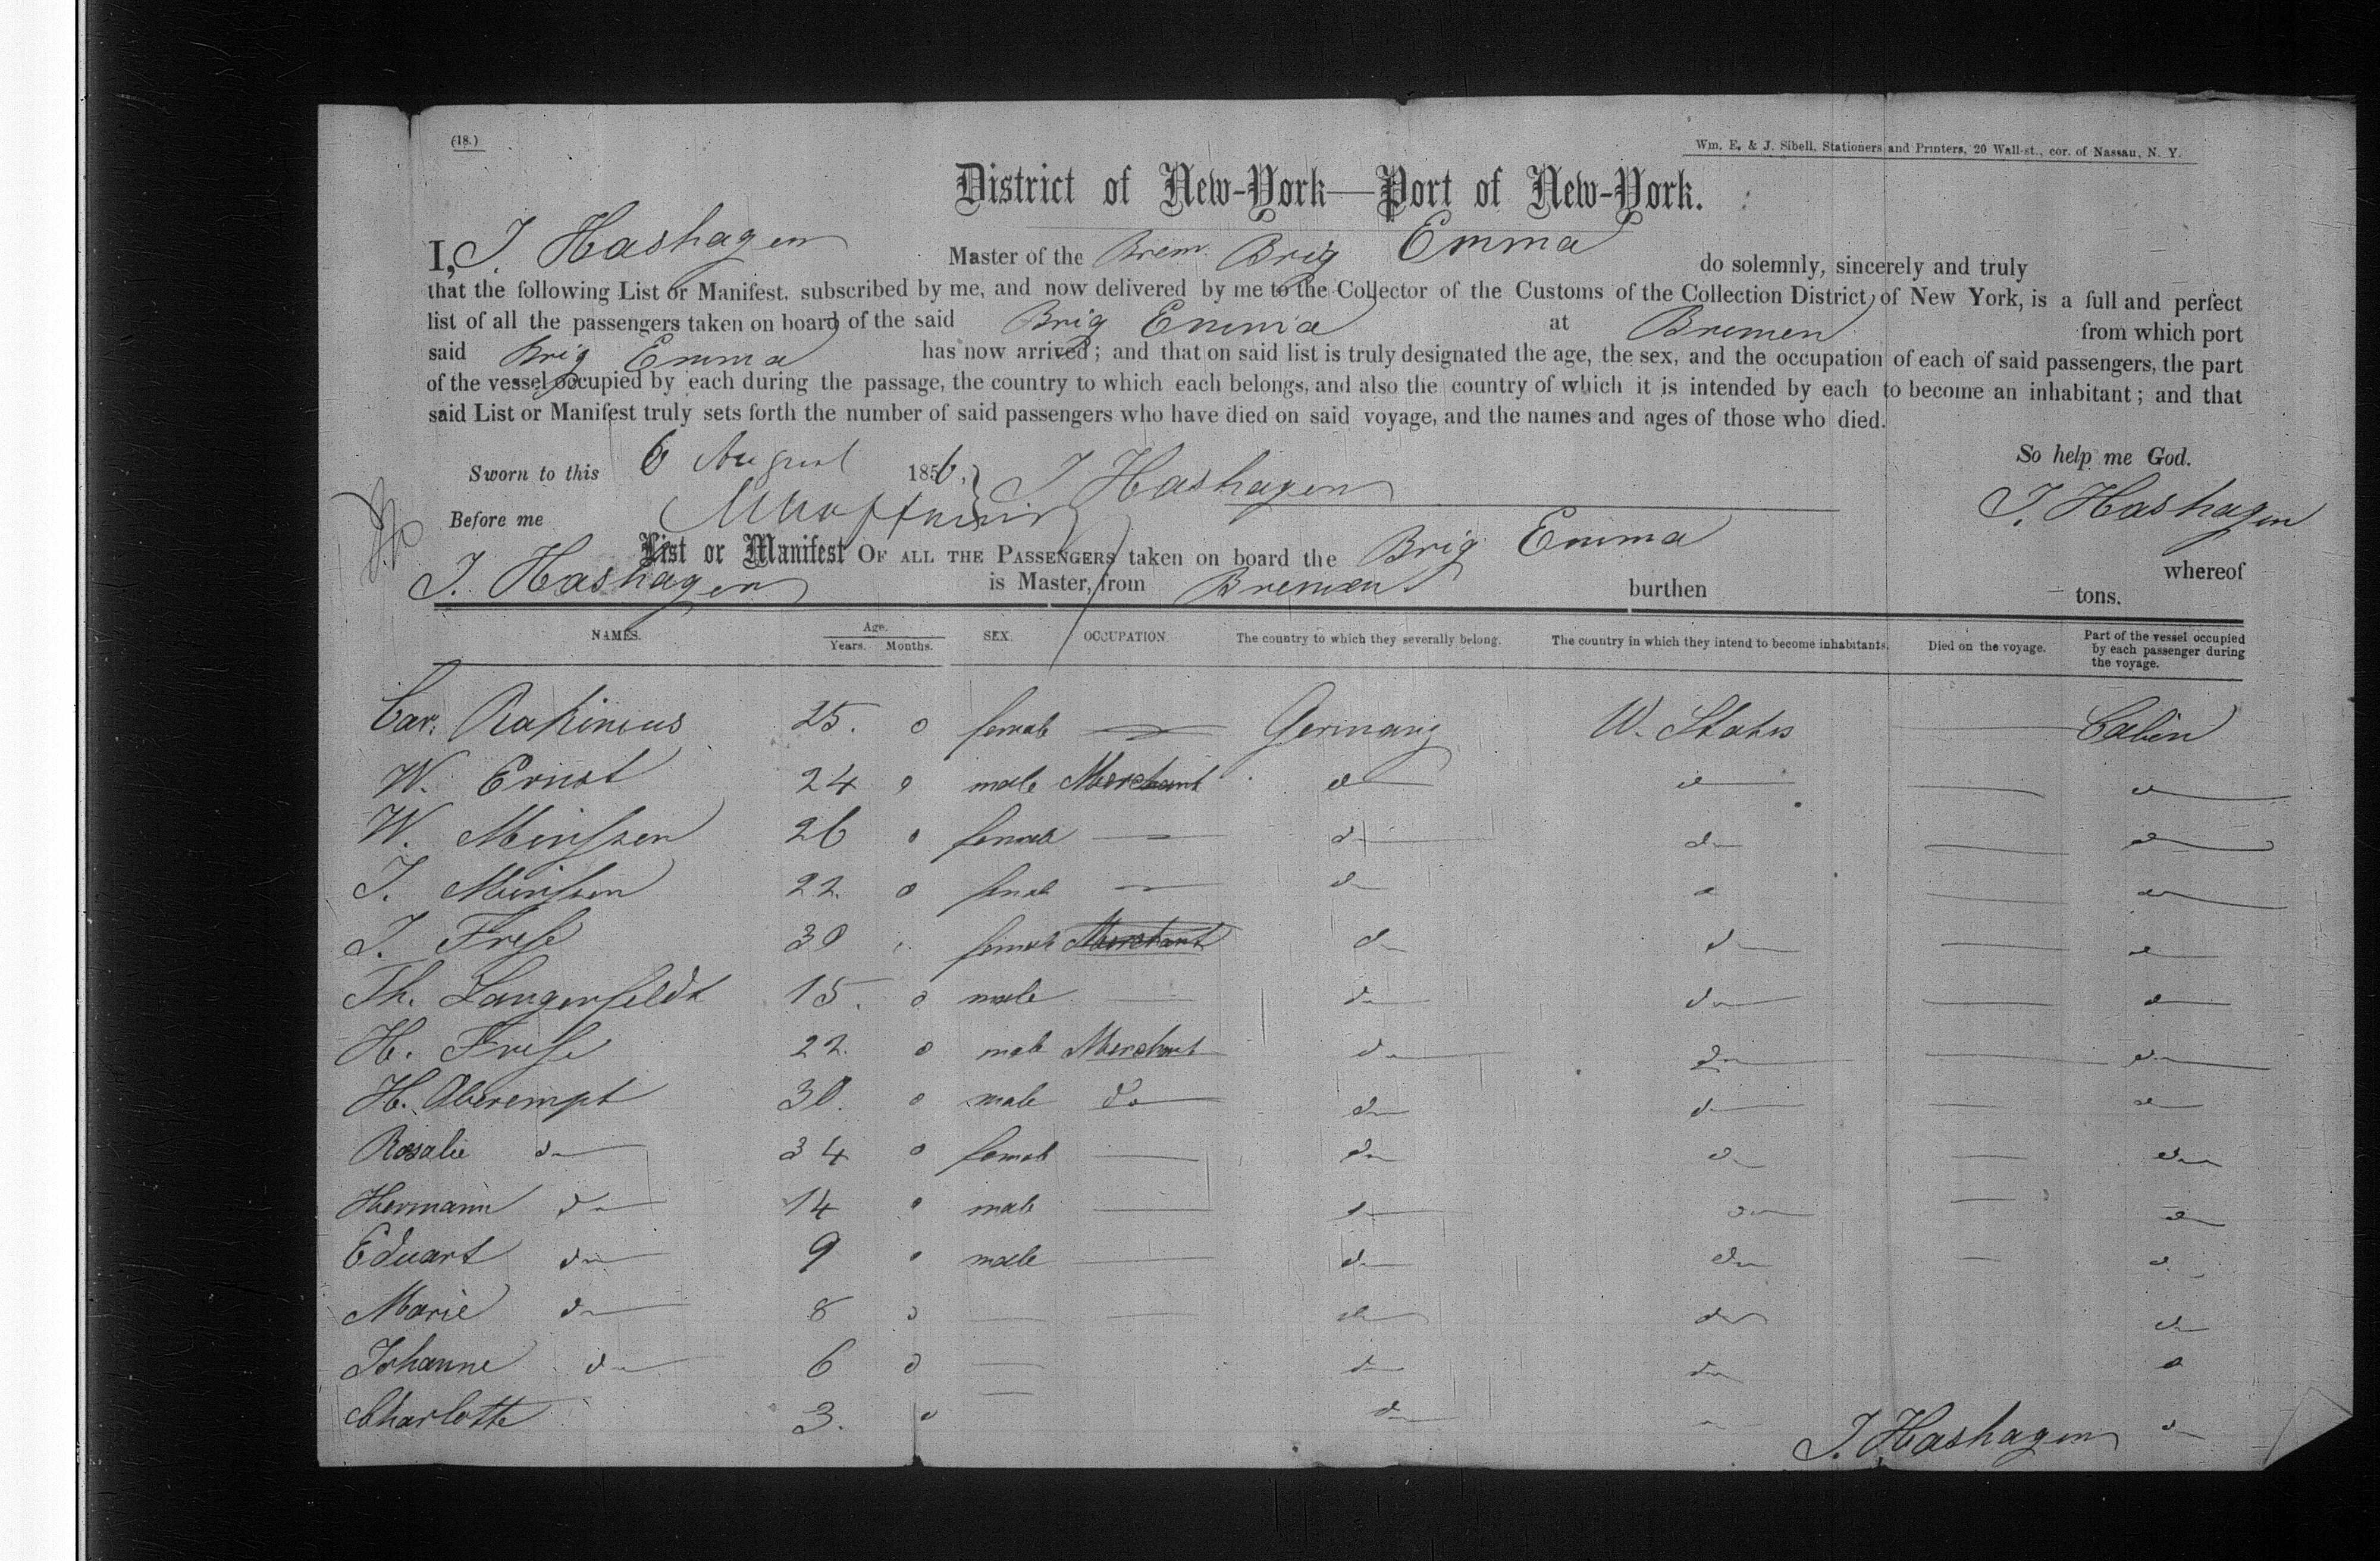 (18.)
Wm. E. & J. Sibell, Stationers and Printers, 20 Wall-st., cor. of Nassau, N. Y.
District of New-York—Port of New-York.
I, J. Hashagen Master of the Brem. Brig Emma do solemnly, sincerely and truly
that the following List or Manifest, subscribed by me, and now delivered by me to the Collector of the Customs of the Collection District of New York, is a full and perfect
list of all the passengers taken on board of the said Brig Emma at Bremen from which port
said Brig Emma has now arrived; and that on said list is truly designated the age, the sex, and the occupation of each of said passengers, the part
of the vessel occupied by each during the passage, the country to which each belongs, and also the country of which it is intended by each to become an inhabitant; and that
said List or Manifest truly sets forth the number of said passengers who have died on said voyage, and the names and ages of those who died.
So help me God.
Sworn to this 6 August 1856, J Hashagen
J. Hashagen
Before me
List or Manifest OF ALL THE PASSENGERS taken on board the Brig Emma whereof
J. Hashagen is Master, from Bremen burthen tons.
NAMES. Age. Years. Months. SEX. OCCUPATION. The country to which they severally belong. The country in which they intend to become inhabitants. Died on the voyage. Part of the vessel occupied by each passenger during the voyage.
Car. 25. 0 female — Germany U. States — Cabin
W. Ernst 24 0 male Merchant do do — do
W. 26 0 female — do do — do
J. 22. 0 female — do do — do
J. Frese 30 female Merchant do do — do
Th. Langerfeldt 15. 0 male — do do — do
H. Frese 22. 0 male Merchant do do — do
H. Oberempt 30. 0 male do do do — do
Rosalie do 34 0 female — do do — do
Hermann do 14 0 male — do do — do
Eduart do 9 0 male — do do — do
Marie do 8 0 — — do do do
Johanne do 6 0 — do do do
Charlotte 3. 0 — do do
J. Hashagen